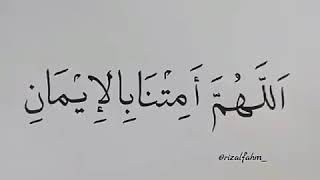 اَللَّهُمَّ أَمِتْنَا بِالْإِيْمَانِ
@rizalfahm_